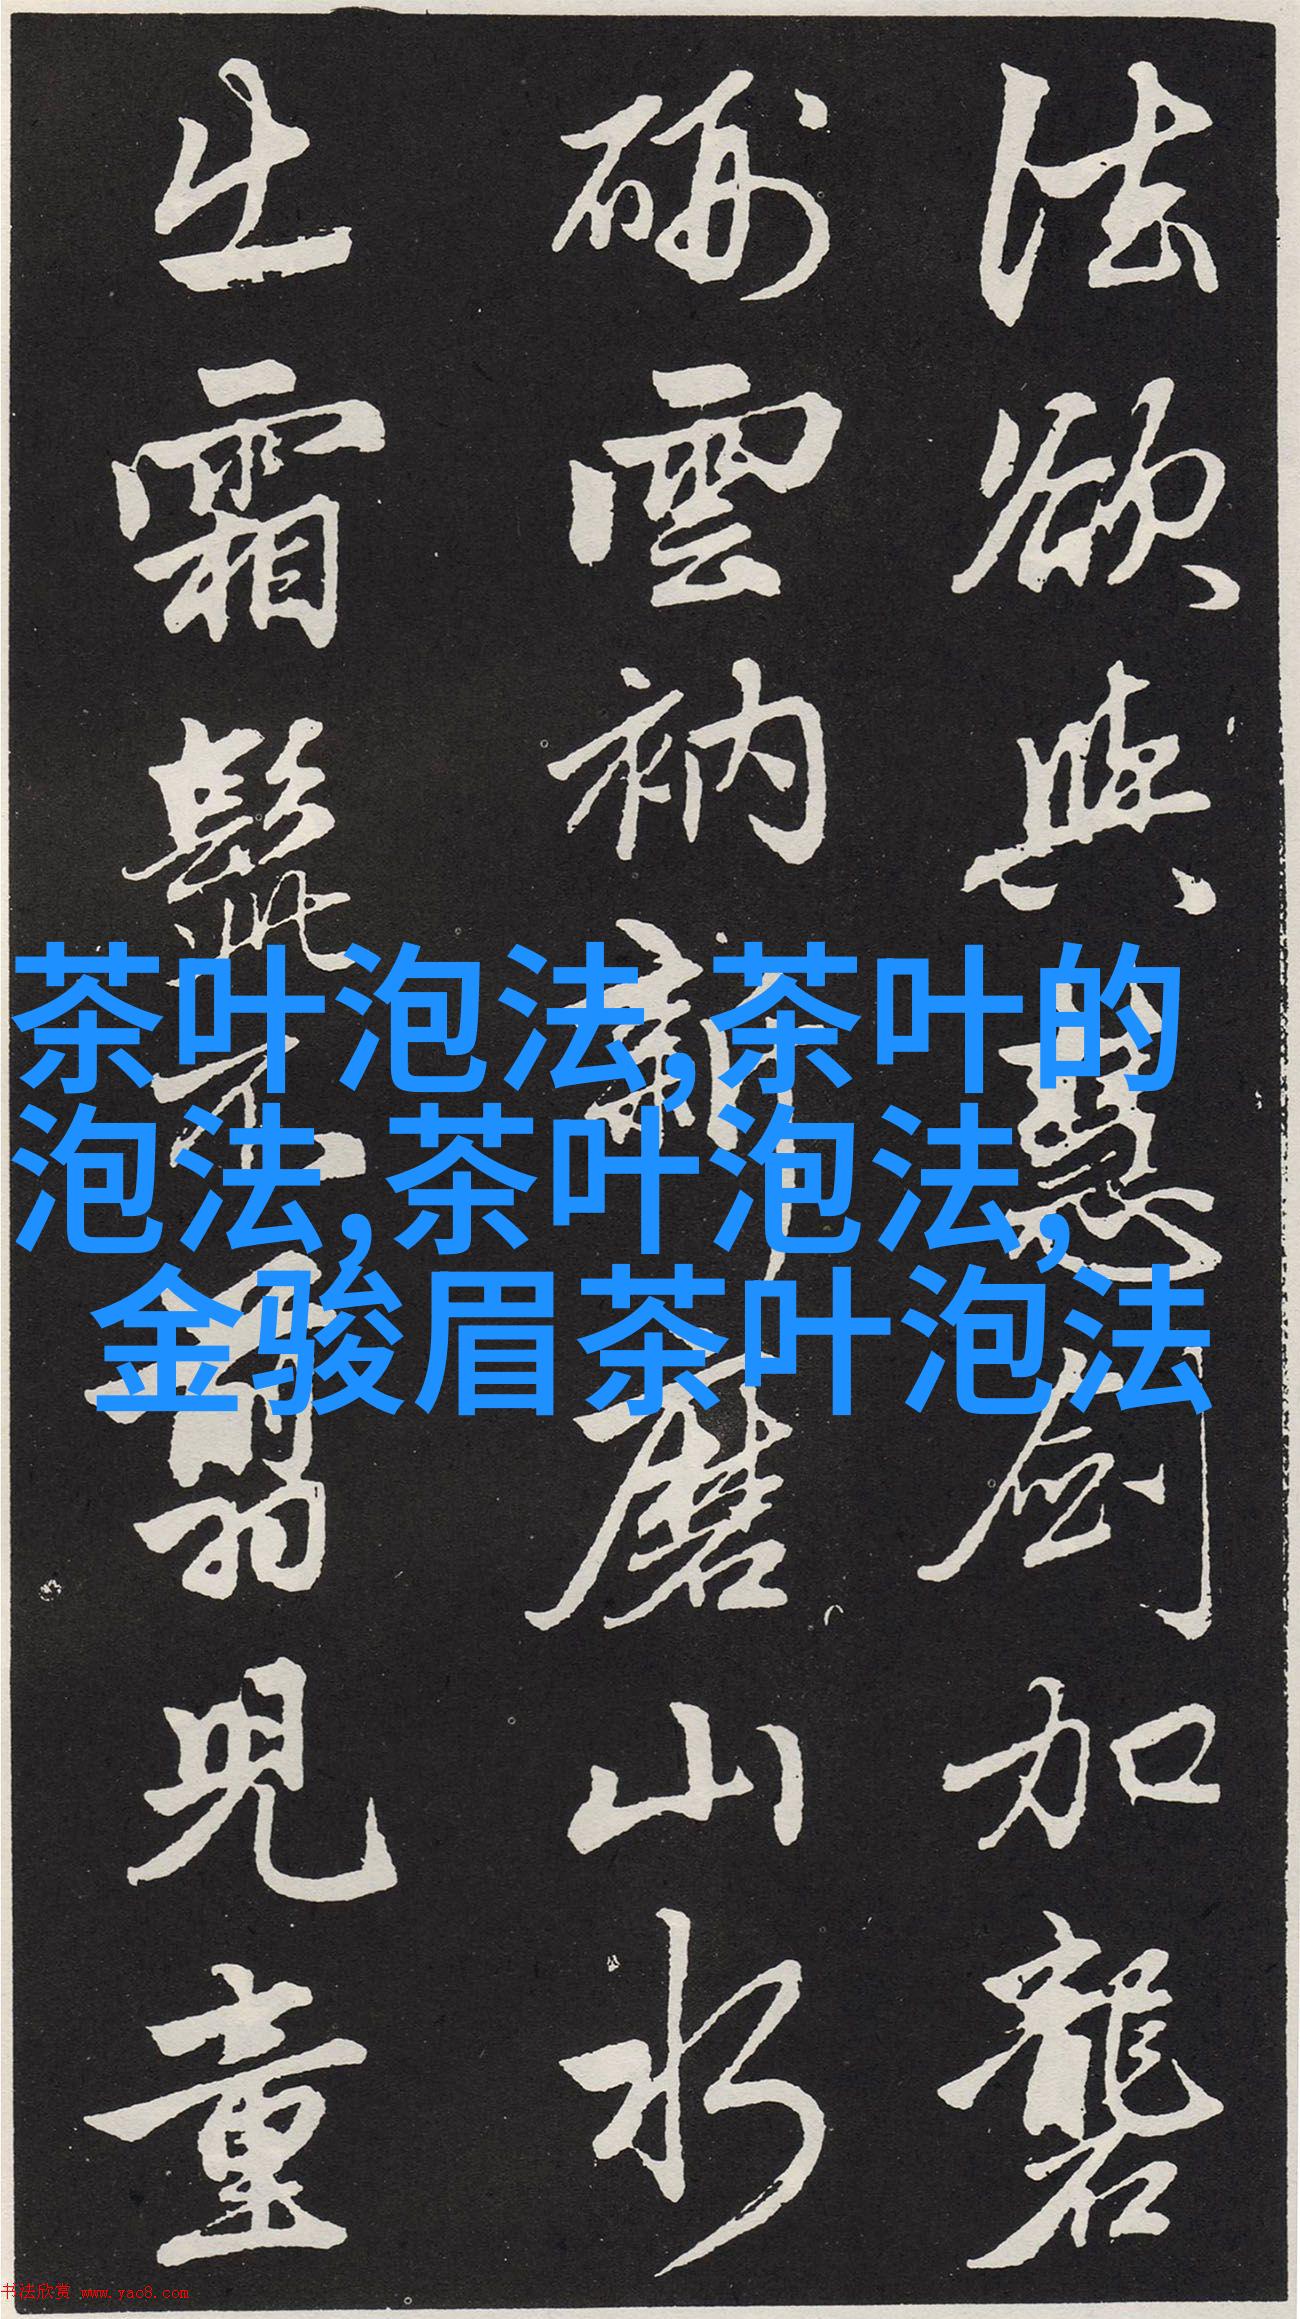 法欲與慧劍加礱
硎雲衲新磨山水
出霜髭不翦兒童
茶叶泡法,茶叶的
泡法,茶叶泡法,
金骏眉茶叶泡法
书法欣赏 www.yac8.com